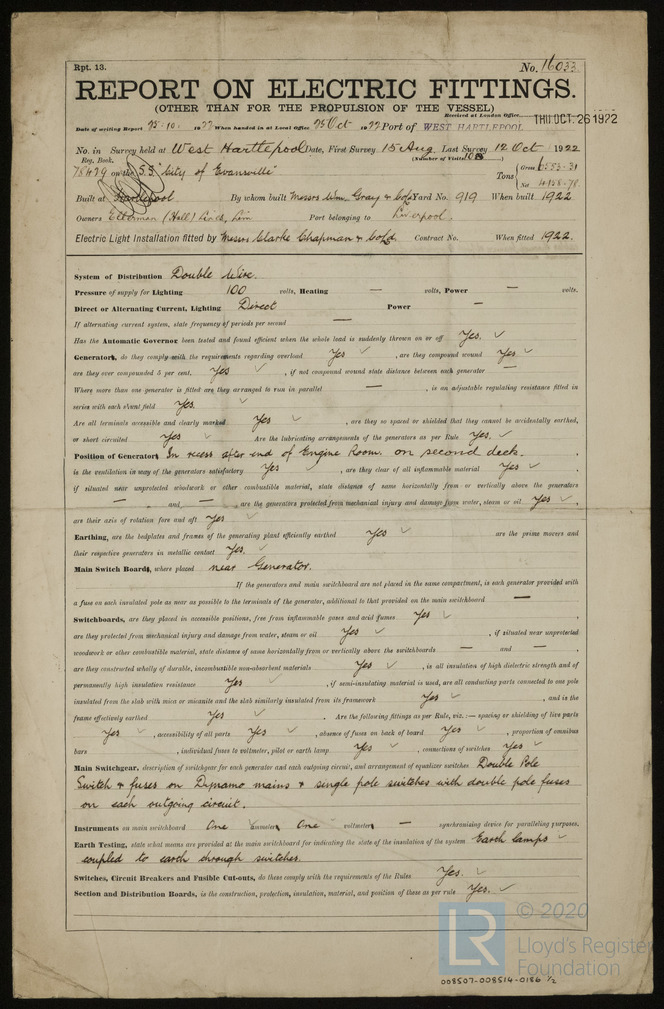 Rpt. 13.
No. 16033
REPORT ON ELECTRIC FITTINGS.
(OTHER THAN FOR THE PROPULSION OF THE VESSEL)
Received at London Office THU. OCT. 26 1922
Date of writing Report 25.10. 1922 When handed in at Local Office 25 Oct 1922 Port of WEST HARTLEPOOL
No. in Survey held at West Hartlepool Date, First Survey 15 Aug Last Survey 12 Oct 1922
Reg. Book. (Number of Visits 10)
78429 on the S.S. "City of Evansville" Tons { Gross 6553.31
Net 4158.78
Built at Hartlepool By whom built Messrs Wm. Gray & Co Ld Yard No. 919 When built 1922
Owners Ellerman (Hall) Line, Lim Port belonging to Liverpool.
Electric Light Installation fitted by Messrs Clarke Chapman & Co Ld. Contract No. When fitted 1922.
System of Distribution Double Wire.
Pressure of supply for Lighting 100 volts, Heating — volts, Power — volts.
Direct or Alternating Current, Lighting Direct Power —
If alternating current system, state frequency of periods per second —
Has the Automatic Governor been tested and found efficient when the whole load is suddenly thrown on or off Yes. ✓
Generators, do they comply with the requirements regarding overload Yes ✓ , are they compound wound Yes ✓
are they over compounded 5 per cent. Yes ✓ , if not compound wound state distance between each generator —
Where more than one generator is fitted are they arranged to run in parallel — , is an adjustable regulating resistance fitted in
series with each shunt field Yes. ✓
Are all terminals accessible and clearly marked Yes ✓ , are they so spaced or shielded that they cannot be accidentally earthed,
or short circuited Yes ✓ Are the lubricating arrangements of the generators as per Rule Yes. ✓
Position of Generators In recess after end of Engine Room. on second deck.
is the ventilation in way of the generators satisfactory Yes ✓ , are they clear of all inflammable material Yes ✓
if situated near unprotected woodwork or other combustible material, state distance of same horizontally from or vertically above the generators
— and — are the generators protected from mechanical injury and damage from water, steam or oil Yes ✓ ,
are their axis of rotation fore and aft Yes ✓
Earthing, are the bedplates and frames of the generating plant efficiently earthed Yes ✓ are the prime movers and
their respective generators in metallic contact Yes. ✓
Main Switch Boards, where placed near Generator.
If the generators and main switchboard are not placed in the same compartment, is each generator provided with
a fuse on each insulated pole as near as possible to the terminals of the generator, additional to that provided on the main switchboard —
Switchboards, are they placed in accessible positions, free from inflammable gases and acid fumes Yes ✓ ,
are they protected from mechanical injury and damage from water, steam or oil Yes ✓ , if situated near unprotected
woodwork or other combustible material, state distance of same horizontally from or vertically above the switchboards — and — ,
are they constructed wholly of durable, incombustible non-absorbent materials Yes ✓ , is all insulation of high dielectric strength and of
permanently high insulation resistance Yes ✓ , if semi-insulating material is used, are all conducting parts connected to one pole
insulated from the slab with mica or micanite and the slab similarly insulated from its framework Yes ✓ , and is the
frame effectively earthed Yes ✓ . Are the following fittings as per Rule, viz.:— spacing or shielding of live parts
Yes ✓ , accessibility of all parts Yes ✓ , absence of fuses on back of board Yes ✓ , proportion of omnibus
bars , individual fuses to voltmeter, pilot or earth lamp Yes ✓ , connections of switches Yes ✓
Main Switchgear, description of switchgear for each generator and each outgoing circuit, and arrangement of equalizer switches Double Pole
Switch & fuses on Dynamo mains & single pole switches with double pole fuses
on each outgoing circuit.
Instruments on main switchboard One ammeters One voltmeters — synchronising device for paralleling purposes.
Earth Testing, state what means are provided at the main switchboard for indicating the state of the insulation of the system Earth lamps ✓
coupled to earth through switches.
Switches, Circuit Breakers and Fusible Cut-outs, do these comply with the requirements of the Rules Yes. ✓
Section and Distribution Boards, is the construction, protection, insulation, material, and position of these as per rule Yes. ✓
LR
© 2020
Lloyd's Register
Foundation
008507-008514-0186 1/2